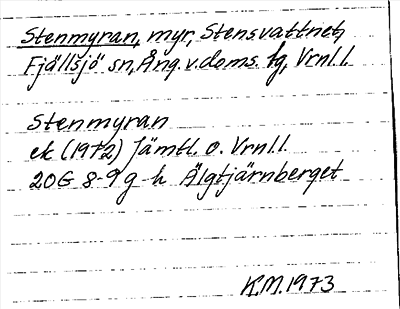 Stenmyran, myr, Stensvattnet,
Fjällsjö sn, Ång. v. doms. fg, Vrnl. l.
Stenmyran
ek (1972) Jämtl. o. Vrnl. l.
20G 8-9 g-h Älgtjärnberget
K.M. 1973